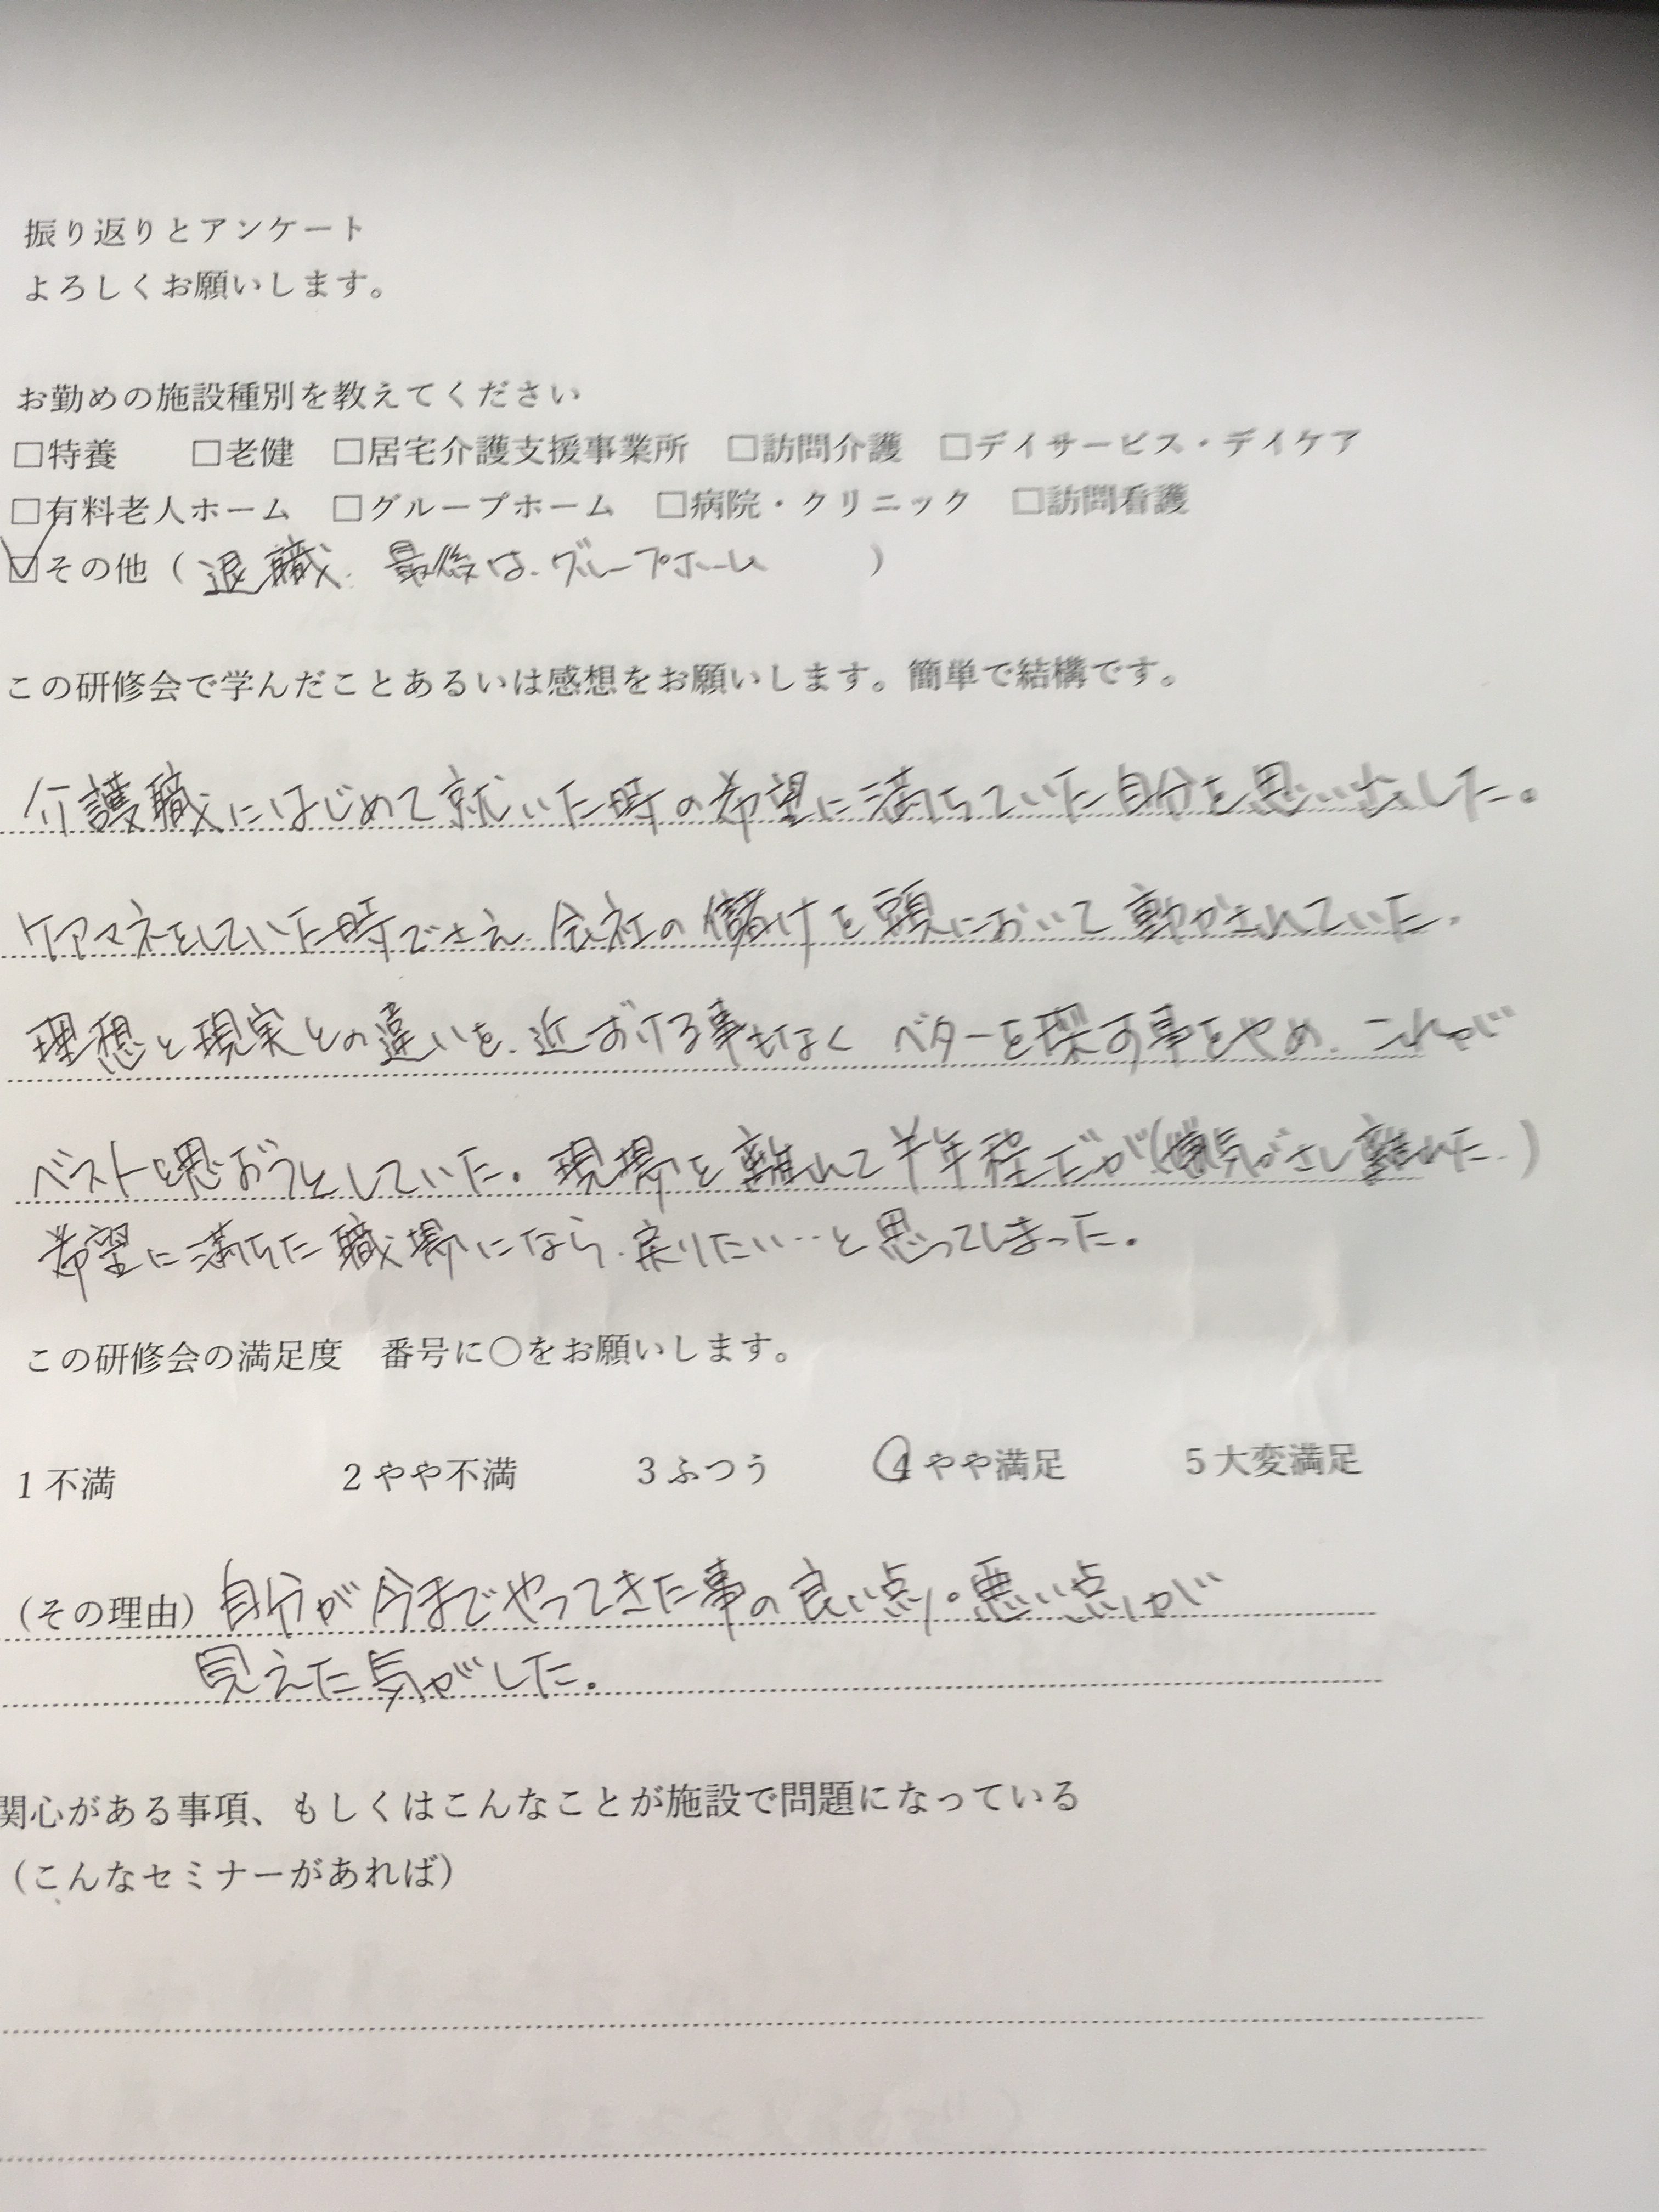 振り返りとアンケート
よろしくお願いします。
お勤めの施設種別を教えてください
□特養　□老健　□居宅介護支援事業所　□訪問介護　□デイサービス・デイケア
□有料老人ホーム　□グループホーム　□病院・クリニック　□訪問看護
☑その他（退職、最後は、グループホーム　）
この研修会で学んだことあるいは感想をお願いします。簡単で結構です。
介護職にはじめて就いた時の希望に満ちていた自分を思い出した。
ケアマネをしていた時でさえ、会社の儲けを頭において動かされていた。
理想と現実との違いを、近ずける事もなく ベターを探す事をやめ、これが
ベストと思おうとしていた。現場を離れて半年程だが(嫌気がさし離れた。)
希望に満ちた職場になら、戻りたい…と思ってしまった。
この研修会の満足度　番号に○をお願いします。
1 不満　2 やや不満　3 ふつう　4 やや満足　5 大変満足
（その理由）自分が今までやってきた事の良い点・悪い点が
見えた気がした。
関心がある事項、もしくはこんなことが施設で問題になっている
（こんなセミナーがあれば）